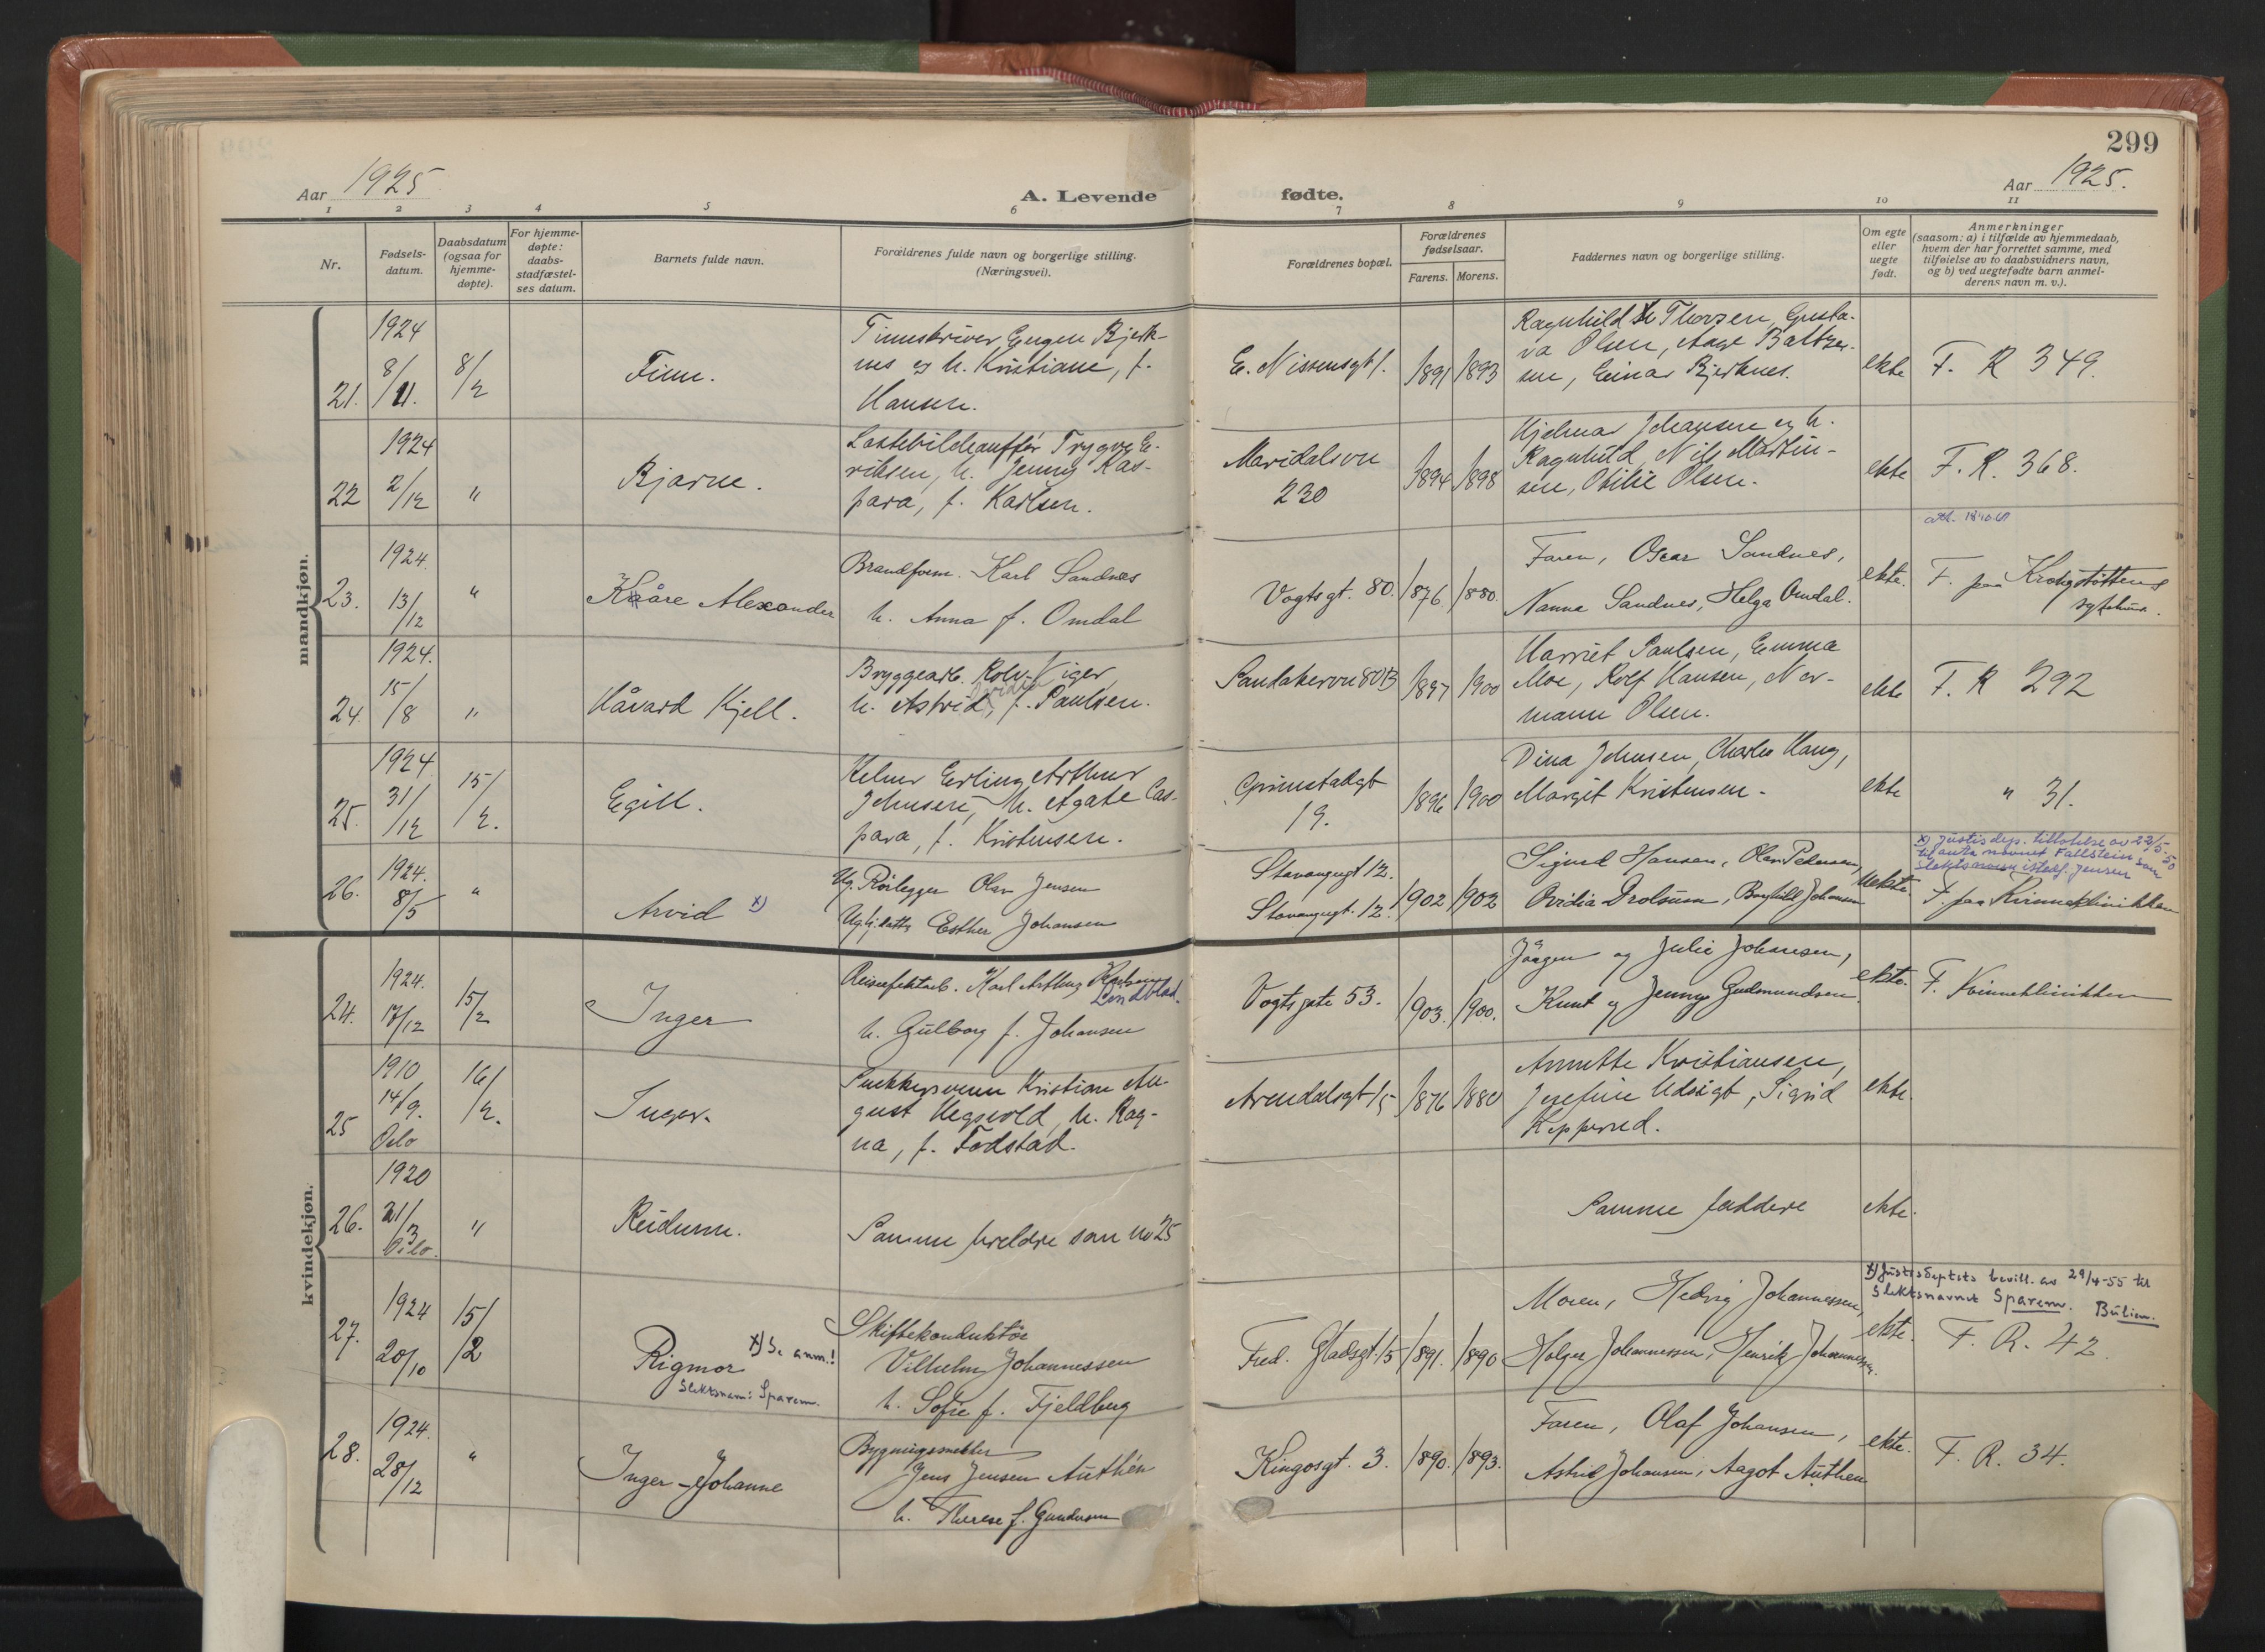 299
Aar 1925
A. Levende fødte.
Aar 1925.
1 2 3 4 5 6 7 8 9 10 11
Nr.
Fødsels-
datum.
Daabsdatum
(ogsaa for
hjemme-
døpte).
For hjemme-
døpte:
daabs-
stadfæstel-
ses datum.
Barnets fulde navn.
Forældrenes fulde navn og borgerlige stilling.
(Næringsvei).
Forældrenes bopæl.
Forældrenes
fødselsaar.
Farens. Morens.
Faddernes navn og borgerlige stilling.
Om egte
eller
uegte
født.
Anmerkninger
(saasom: a) i tilfælde av hjemmedaab,
hvem der har forrettet samme, med
tilføielse av to daabsvidners navn,
og b) ved uegtefødte barn anmel-
derens navn m. v.).
mandkjøn.
21.
1924
8/11.
8/2
Finn.
Eugen Bjerk-
nes og h. Kristiane, f.
Hansen.
E. Nissensgt 1.
1891 1893
Ragnhild Thorsen, Gusta-
va Olsen, Aage Baltzer-
sen, Einar Bjerknes.
ekte
F. R 349.
22
1924
2/12
"
Bjarne.
Trygve E-
riksen, h. Jenny Kas-
para, f. Karlsen.
Maridalsvn
230
1894 1898
Hjelmar Johansen og h.
Ragnhild, Nils Martin-
sen, Otilie Olsen.
ekte
F. R. 368.
23.
1924.
13/12
"
Kåre Alexander
Brandform. Karl Sandnes
h. Anna f. Omdal
Vogtsgt. 80.
1876 1880.
Faren, Oscar Sandnes,
Nanna Sandnes, Helga Omdal.
ekte.
F. paa Krohgstøttens
sykehus.
24.
1924.
15/8
"
Håvard Kjell.
Bryggearb. Rolv
h. Astrid, f. Paulsen.
Sandakervn 80B
1897 1900
Harriet Paulsen, Emma
Moe, Rolf Hansen, Nor-
mann Olsen.
ekte
F. R 292
25.
1924
31/12
15/2.
Egill.
Kelner Erling Arthur
Johnsen, h. Agate Cas-
para, f. Kristensen.
Grimstadgt
19.
1896 1900
Dina Johnsen, Charles Haug,
Margit Kristensen.
ekte
" 31.
26.
1924.
8/5
"
Arvid x)
Ug. Rørlegger Olav Jensen
Ug. hj. datter Esther Johansen
Stavangergt 12.
Stavangergt. 12.
1902 1902
Sigurd Hansen, Olav Pedersen,
Ovidia Drolsum, Borghild Johansen
Uekte.
x) Justisdep. tillatelse av 22/5-50
til anta navnet Fallstein som
slektsnavn istedf. Jensen
F. paa Kvinneklinikken
kvindekjøn.
24.
1924.
17/12
15/2
Inger
Reiseefektarb. Karl Arthur Karlsen
Lindblad.
h. Gulborg f. Johansen
Vogtsgate 53.
1903. 1900.
Jørgen og Julie Johansen,
Knut og Jenny Gudmundsen
ekte.
F. Kvinneklinikken
25
1910
14/9.
Oslo
16/2.
Inger.
Snekkersvenn Kristian Au-
gust Hegsvold, h. Rag-
na, f. Fodstad.
Arendalsgt 15
1876 1880
Annette Kristiansen,
Josefine Udsigt, Sigrid
Kepperud.
ekte.
26.
1920
21/3
Oslo.
"
Reidunn.
Samme foreldre som no 25
Samme faddere
ekte.
27.
1924
20/10
15/2
Rigmor x) Se anm.!
Slektsnavn: Sparem.
Skiftekonduktør
Vilhelm Johannessen
h. Sofie f. Fjeldberg
Fred. Gladsgt. 15
1891. 1890
Moren, Hedvig Johannessen,
Holger Johannessen, Henrik Johannessen.
ekte.
x) Justisdeptets bevill. av 29/4-55 til
Slektsnavnet Sparem.
F. R. 42.
28.
1924.
28/12
"
Inger-Johanne
Bygningssnekker
Jens Jensen Authén
h. Therese f. Gundersen
Kingosgt. 3.
1890. 1893.
Faren, Olaf Johansen,
Astrid Johansen, Aagot Authen
ekte.
F. R. 34.